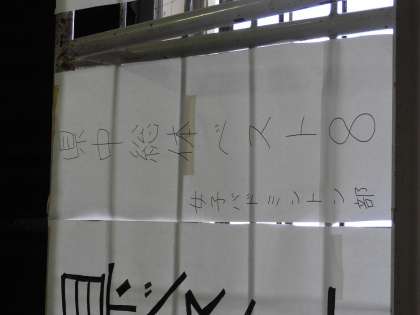 県中総体ベスト8
女子バドミントン部